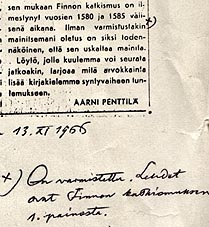 sen mukaan Finnon katkismus on il-
mestynyt vuosien 1580 ja 1585 väli-
senä aikana. Ilman varmistustakin x)
mainitsemani oletus on siksi toden-
näköinen, että sen uskaltaa mainita.
— Löytö, jolle kuulemma voi seurata
jatkoakin, tarjoaa mitä arvokkainta
lisää kirjakielemme syntyvaiheen tun-
temukseen.
AARNI PENTTILÄ
13. XI 1966
x) On varmistettu. Lehdet
ovat Finnon katkismuksen
1. painosta.